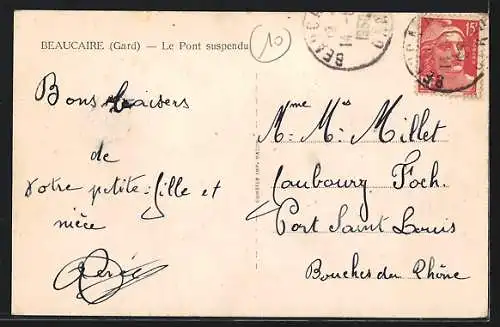 BEAUCAIRE (Gard) — Le Pont suspendu
10
15F
Bons baisers
de
votre petite-fille et
nièce
Mme Mrs Millet
Faubourg Foch
Port Saint Louis
Bouches du Rhône